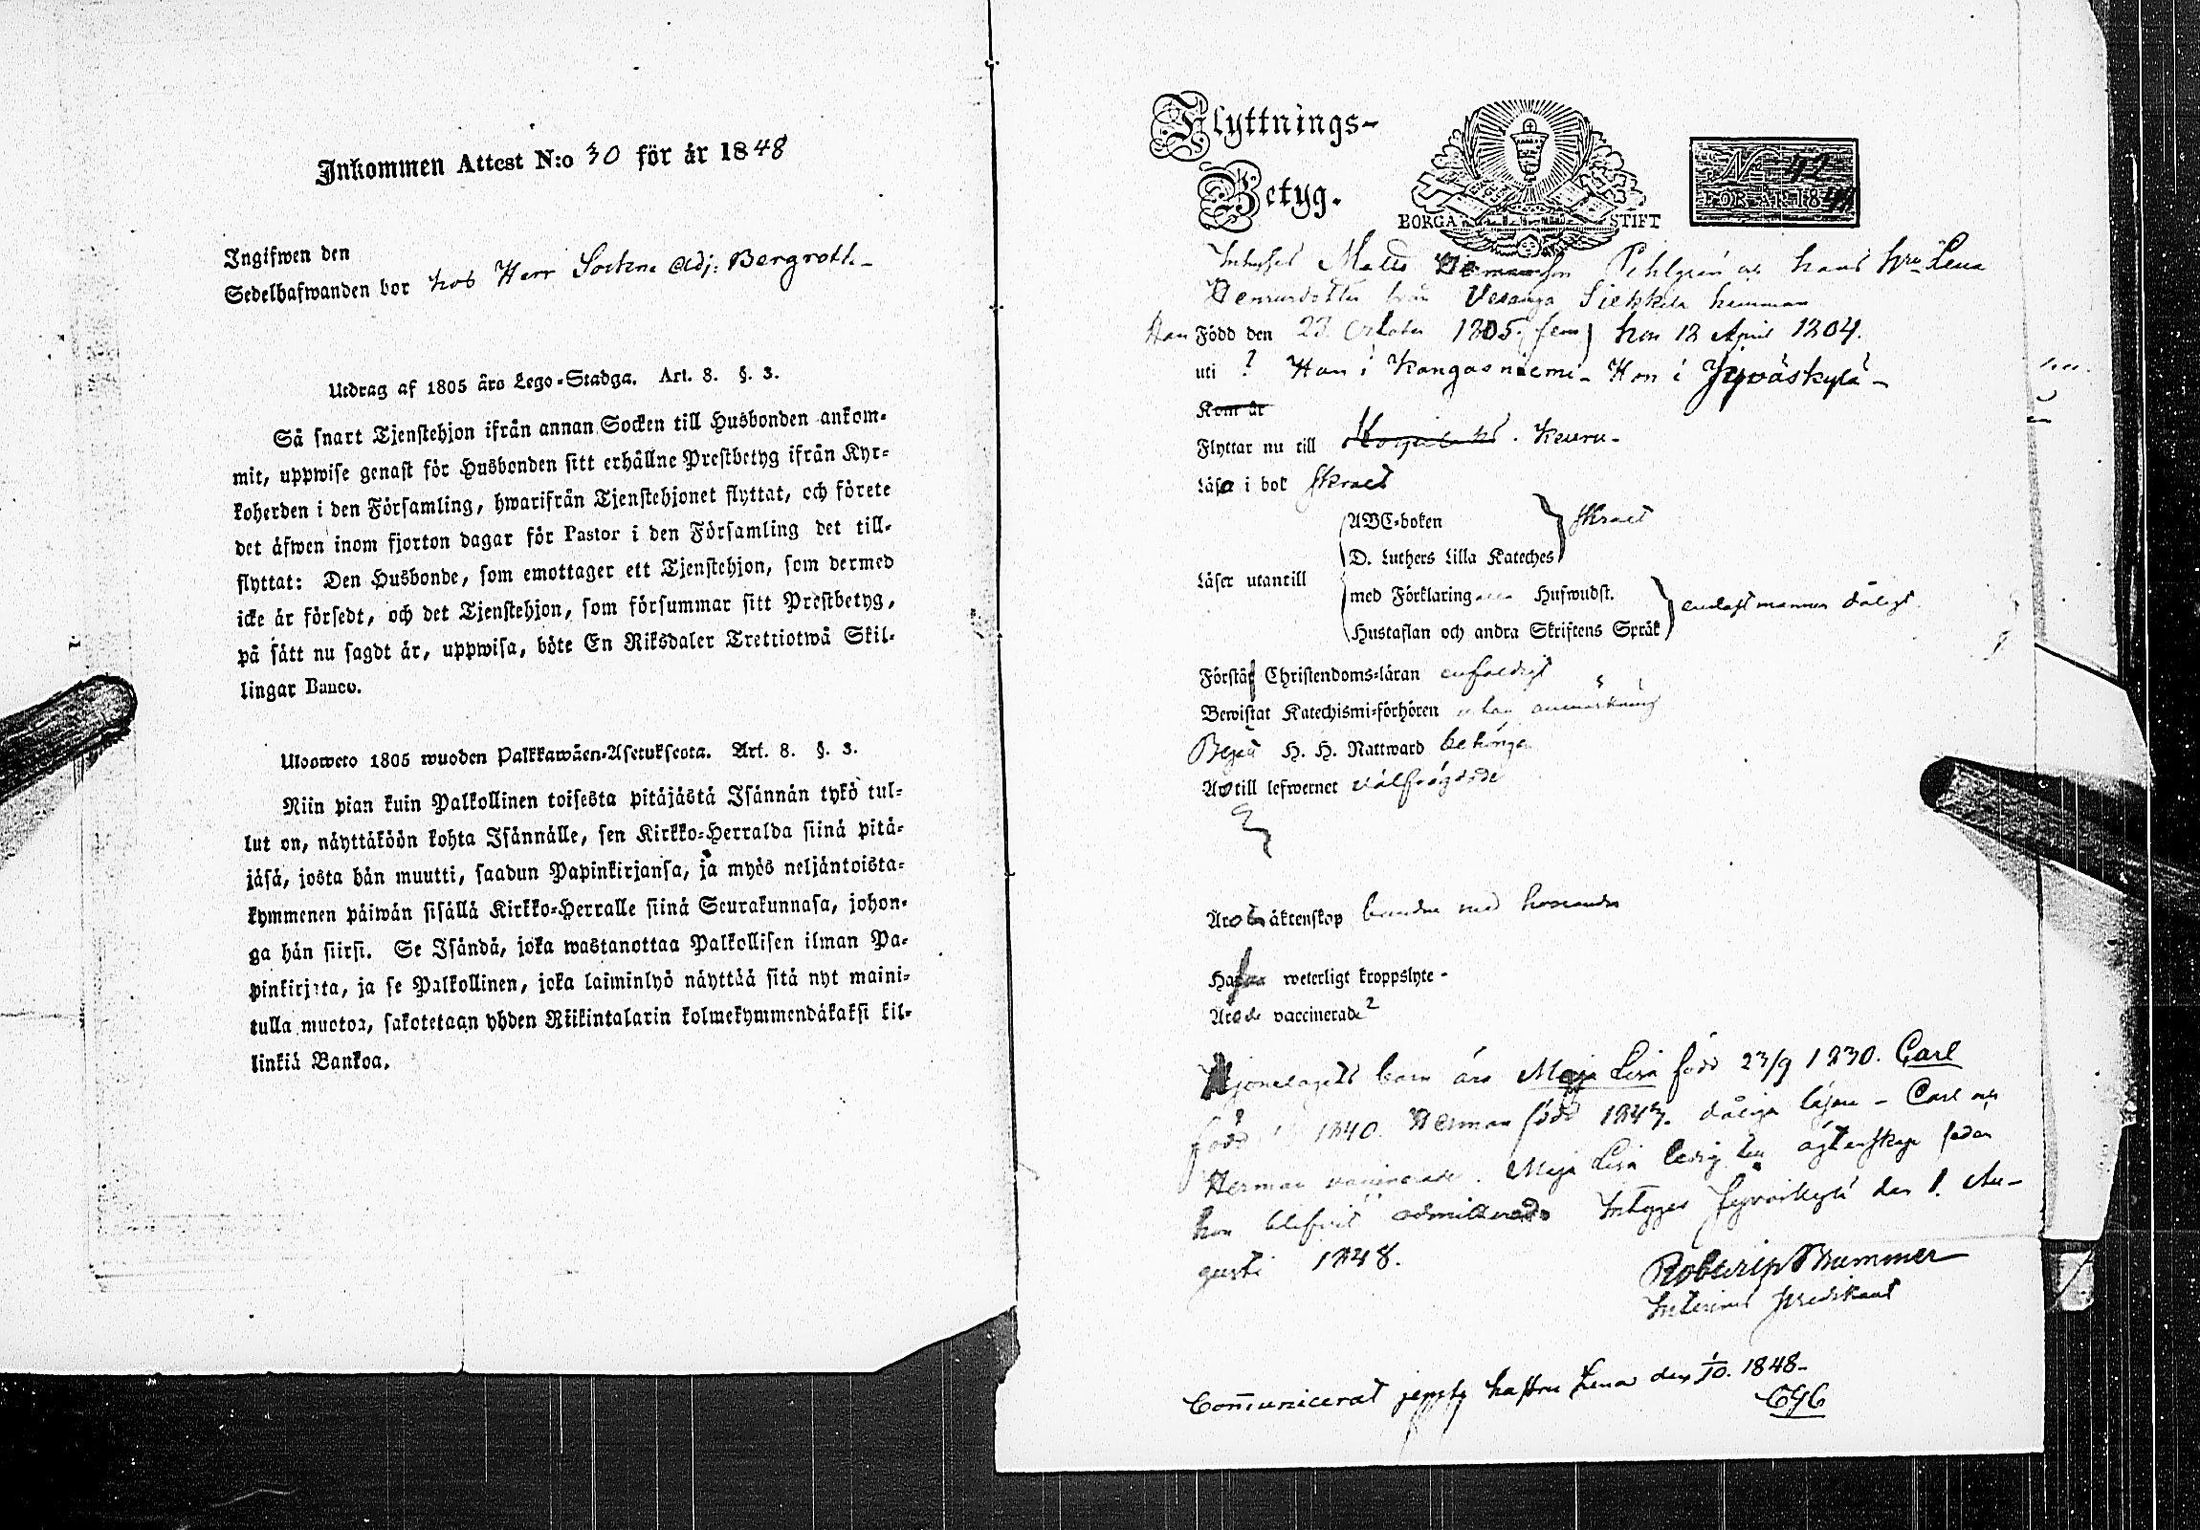 Inkommen Attest N:o 30 för år 1848
Ingifwen den
Sedelhafwanden bor hos Herr Sockne Adj: Bergroth
Utdrag af 1805 års Lego-Stadga. Art. 8. §. 3.
Så snart Tjenstehjon ifrån annan Socken till Husbonden ankom-
mit, uppwise genast för Husbonden sitt erhållne Prestbetyg ifrån Kyr-
koherden i den Församling, hwarifrån Tjenstehjonet flyttat, och förete
det äfwen inom fjorton dagar för Pastor i den Församling det till-
flyttat: Den Husbonde, som emottager ett Tjenstehjon, som dermed
icke är försedt, och det Tjenstehjon, som försummar sitt Prestbetyg,
på sätt nu sagdt är, uppwisa, böte En Riksdaler Trettiotwå Skil-
lingar Banco.
Ulosweto 1805 wuoden Palkkawäen-Asetuksesta. Art. 8. §. 3.
Niin pian kuin Palkollinen toisesta pitäjästä Isännän tykö tul-
lut on, näyttäköön kohta Isännälle, sen Kirkko-Herralda siinä pitä-
jäsä, josta hän muutti, saadun Papinkirjansa, ja myös neljäntoista-
kymmenen päiwän sisällä Kirkko-Herralle siinä Seurakunnasa, johon-
ga hän siirsi. Se Isändä, joka wastanottaa Palkollisen ilman Pa-
pinkirjata, ja se Palkollinen, joka laiminlyö näyttää sitä nyt maini-
tulla muotoa, sakotetaan yhden Riikintalarin kolmekymmendäkaksi kil-
linkiä Bankoa.
Flyttnings-
Betyg.
BORGÅ STIFT
N 42
FÖR ÅR 1848
Matts Hermansson Pehlgren och hans hru Lena
Henriksdotter från Vesanga Siekkila hemman
Han Född den 23 October 1805 (fem) hon 12 April 1804.
uti ? Han i Kangasniemi - Hon i Jyväskylä -
Kom år
Flyttar nu till Keuru -
Läsa i bok skralt
ABC-boken
D. Luthers Lilla Kateches
skralt
Läser utantill
med Förklaring Hufwudst.
Hustaflan och andra Skriftens Språk
endast mannen dåligt
Förstå Christendoms-läran enfaldigt
Bewistat Katechismi-förhören utan anmärkning
Begått H. H. Nattward behörigen
Äro till lefwernet välfrägdade
Äro till äktenskap bundna med hvarandra
Hafwa weterligt kroppslyte -
Äro de vaccinerade ?
barn äro Maja Lisa född 23/9 1830. Carl
född 1840. Herman född 1847. dåliga läsare - Carl och
Herman vaccinerade. Maja Lisa ledig till ägtenskap sedan
hon blifvit admitterad. Intygar Jyväskylä den 1. Au-
gusti 1848.
Brummer
Interims predikant
Communicerat hustru Lena den 1/10. 1848 -